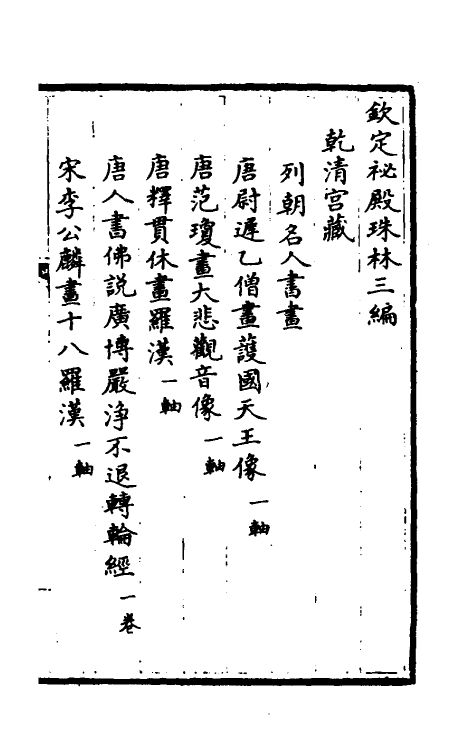 欽定祕殿珠林三編
乾清宮藏
列朝名人書畫
唐尉遲乙僧畫護國天王像一軸
唐范瓊畫大悲觀音像一軸
唐釋貫休畫羅漢一軸
唐人書佛說廣博嚴淨不退轉輪經一卷
宋李公麟畫十八羅漢一軸